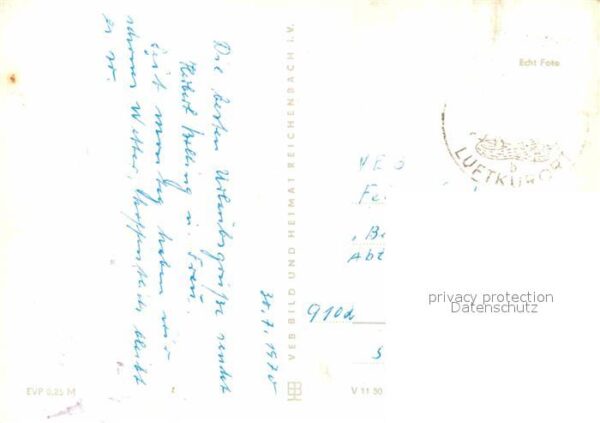 30.7.1970
Die besten Urlaubsgrüße sendet
Herbert u. Frau.
Seit montag haben wir
schönes Wetter, hoffentlich bleibt
es so.
VEB BILD UND HEIMAT REICHENBACH I.V.
Echt Foto
b
LUFTKURORT
VEB
Abt
privacy protection
Datenschutz
EVP 0,25 M
V 11 50